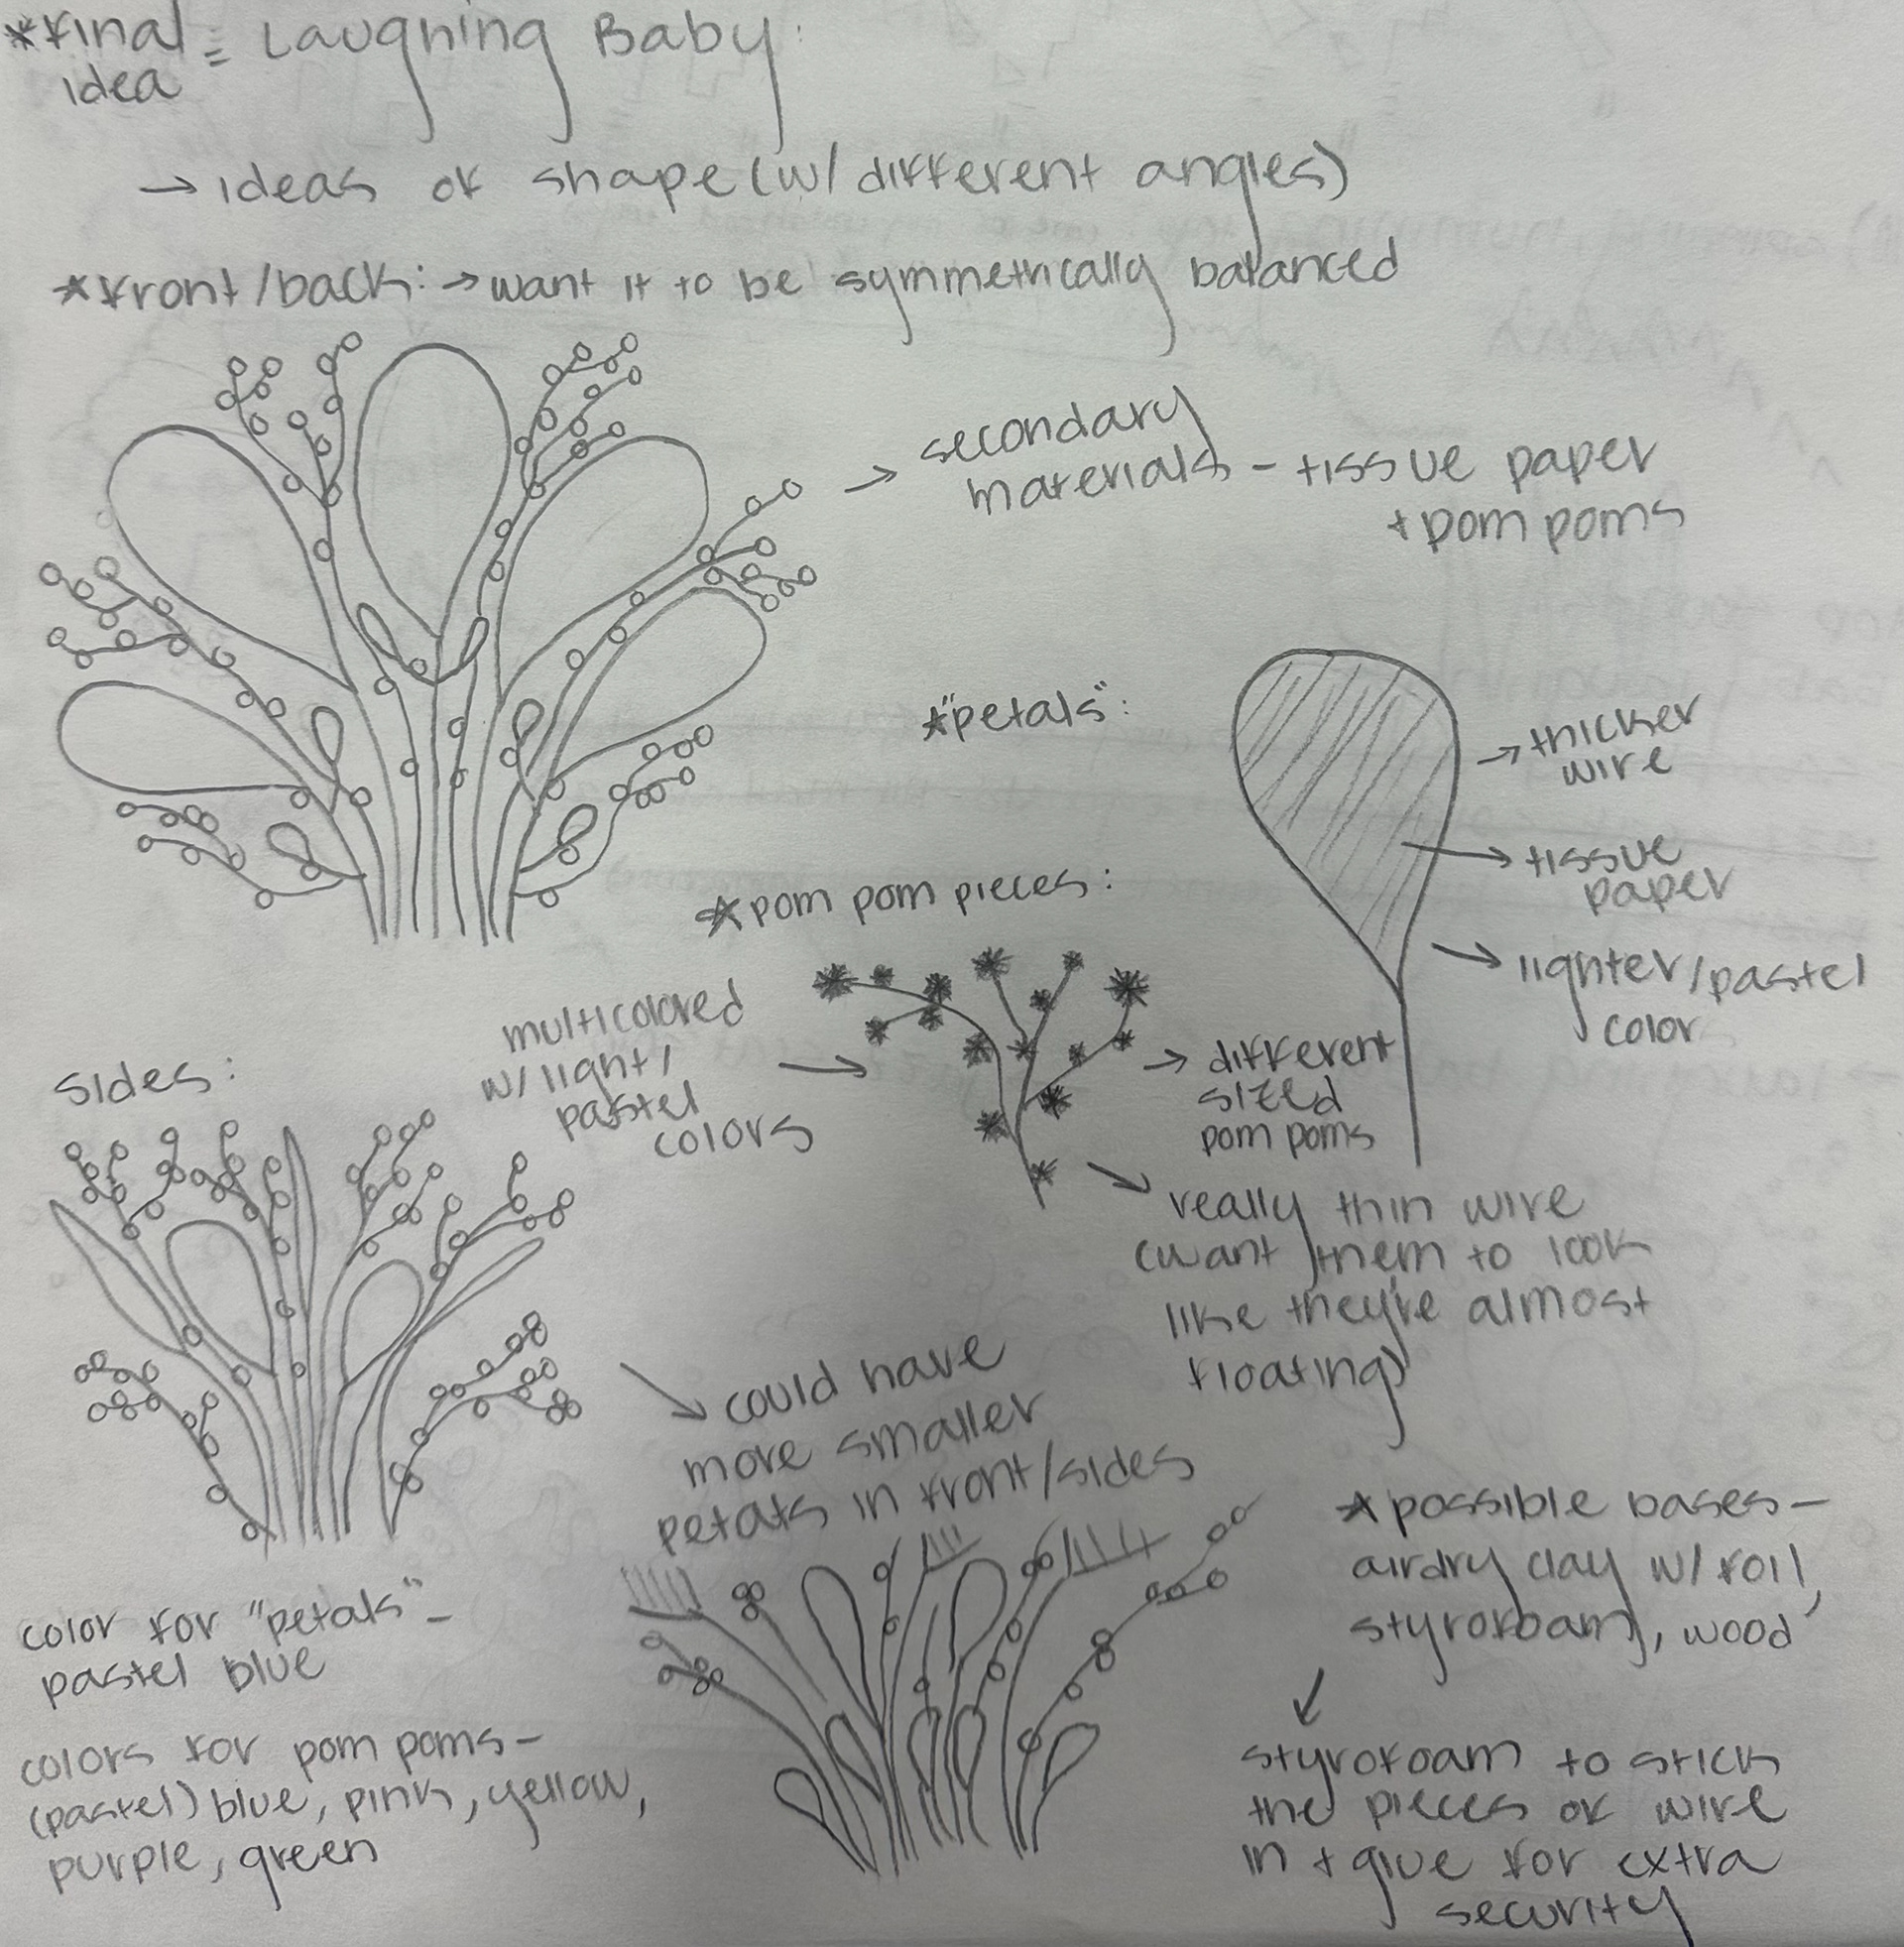 *Final = Laughing Baby:
idea
→ ideas of shape (w/ different angles)
*front/back: → want it to be symmetrically balanced
→ secondary
materials - tissue paper
+ pom poms
*"petals":
→ thicker
wire
→ tissue
paper
→ lighter/pastel
color
*pom pom pieces:
multicolored
w/ light/
pastel
colors
→ different
sized
pom poms
→ really thin wire
(want them to look
like they're almost
floating)
sides:
→ could have
more smaller
petals in front/sides
*possible bases-
airdry clay w/ foil,
styrofoam, wood
↓
styrofoam to stick
the pieces of wire
in + glue for extra
security
color for "petals"-
pastel blue
colors for pom poms-
(pastel) blue, pink, yellow,
purple, green